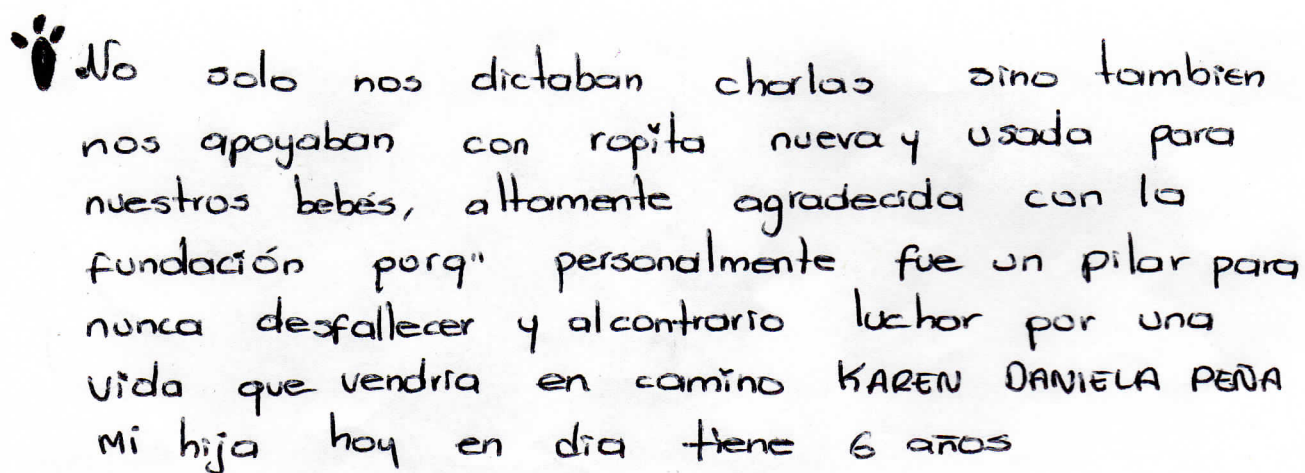 No solo nos dictaban charlas sino tambien
nos apoyaban con ropita nueva y usada para
nuestros bebés, altamente agradecida con la
fundación porq" personalmente fue un pilar para
nunca desfallecer y al contrario luchar por una
vida que vendria en camino KAREN DANIELA PEÑA
Mi hija hoy en dia tiene 6 años